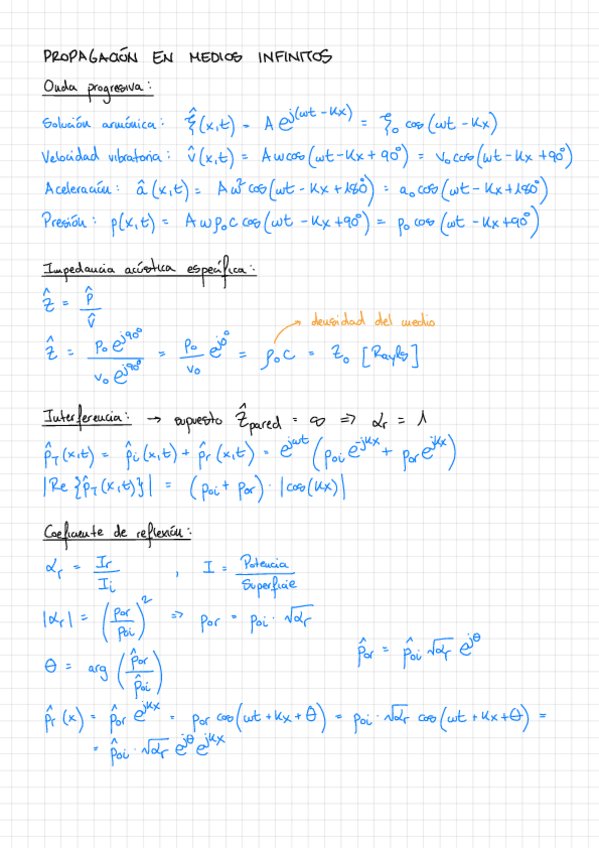 PROPAGACIÓN EN MEDIOS INFINITOS
Onda progresiva:
Solución armónica: ξ̂(x,t) = A e^{j(ωt - Kx)} = ξ₀ cos(ωt - Kx)
Velocidad vibratoria: v̂(x,t) = Aω cos(ωt - Kx + 90°) = v₀ cos(ωt - Kx + 90°)
Aceleración: â(x,t) = Aω² cos(ωt - Kx + 180°) = a₀ cos(ωt - Kx + 180°)
Presión: p(x,t) = Aωρ₀c cos(ωt - Kx + 90°) = p₀ cos(ωt - Kx + 90°)
Impedancia acústica específica:
Ẑ = p̂ / v̂
→ densidad del medio
Ẑ = p₀ e^{j90°} / v₀ e^{j90°} = p₀ / v₀ e^{j0°} = ρ₀c = Z₀ [Rayls]
Interferencia: → supuesto Ẑ_pared = ∞ ⇒ α_r = 1
p̂_T(x,t) = p̂_i(x,t) + p̂_r(x,t) = e^{jωt} (p_{0i} e^{-jKx} + p_{0r} e^{jKx})
|Re{p̂_T(x,t)}| = (p_{0i} + p_{0r}) · |cos(Kx)|
Coeficiente de reflexión:
α_r = I_r / I_i , I = Potencia / Superficie
|α_r| = (p_{0r} / p_{0i})² ⇒ p_{0r} = p_{0i} · √α_r
p̂_{0r} = p̂_{0i} √α_r e^{jθ}
θ = arg (p̂_{0r} / p̂_{0i})
p̂_r(x) = p̂_{0r} e^{jKx} = p_{0r} cos(ωt + Kx + θ) = p_{0i} · √α_r cos(ωt + Kx + θ) =
= p̂_{0i} · √α_r e^{jθ} e^{jKx}